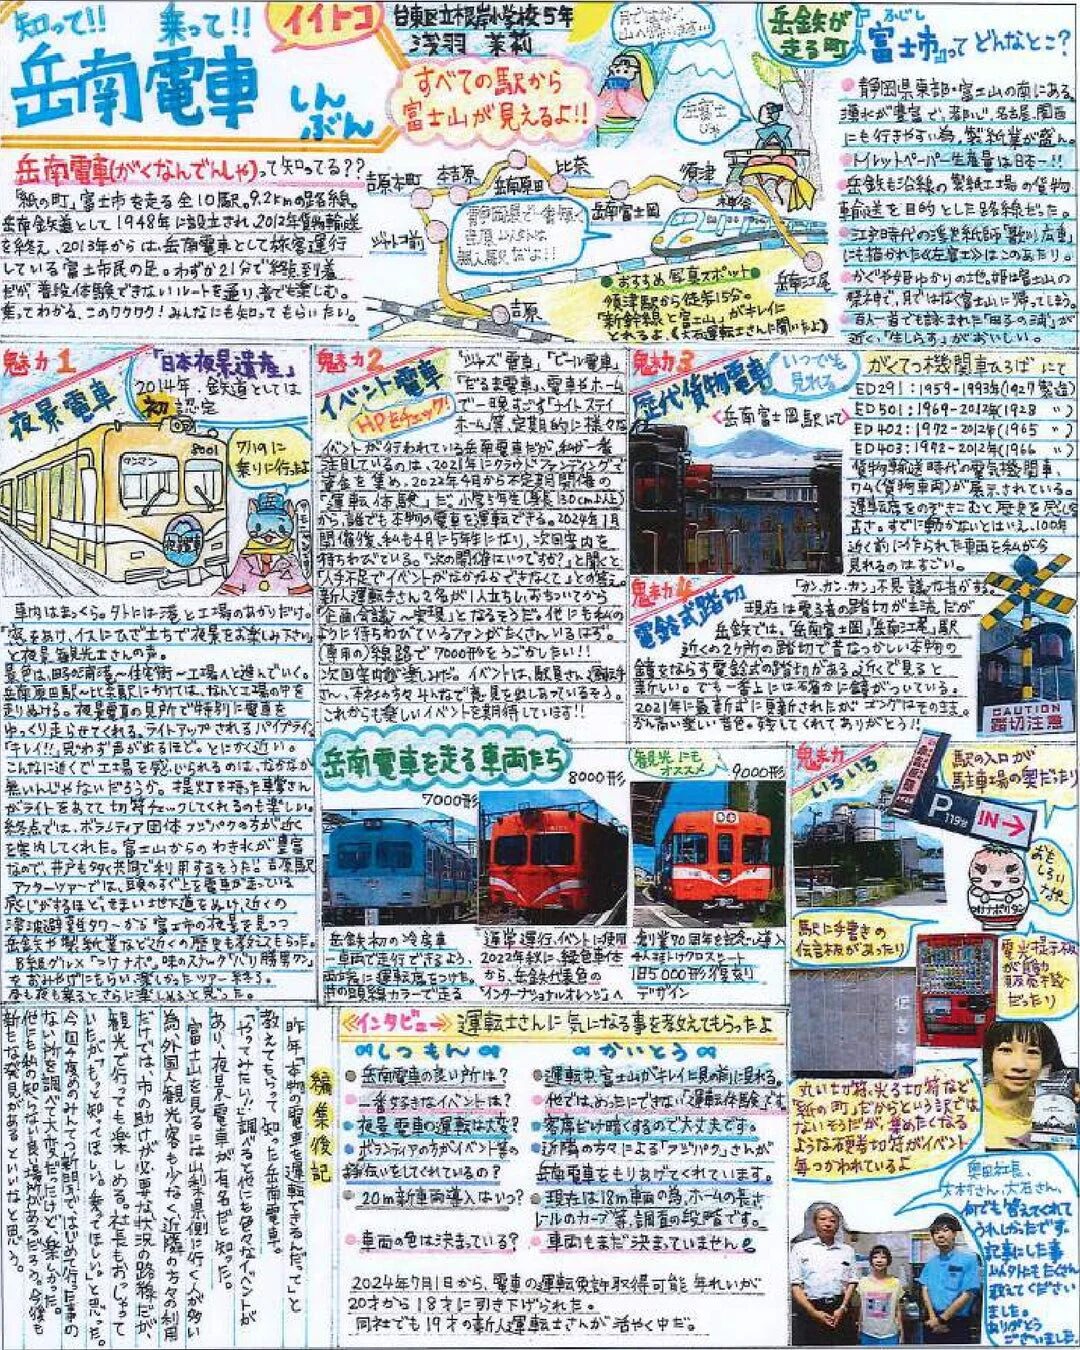 知って!!　乗って!!
岳南電車
しんぶん
イイトコ
台東区立根岸小学校5年
浅羽 茉莉
すべての駅から
富士山が見えるよ!!
岳鉄が
走る町
『富士市』って どんなとこ?
ふじし
静岡県東部・富士山の南にある。
湧水が豊富で、都心、名古屋、関西
にも行きやすい為、製紙業が盛ん。
トイレットペーパー生産量は日本一!!
岳鉄も沿線の製紙工場の貨物
輸送を目的とした路線だった。
江戸時代の浮世絵師「歌川広重」
にも描かれた《左富士》はこのあたり。
百人一首でも詠まれた「田子の浦」が
近く、「生しらす」がおいしい。
岳南電車(がくなんでんしゃ)って知ってる??
「紙の町」富士市を走る全10駅。9.2kmの路線。
岳南鉄道として1948年に設立され、2012年貨物輸送
を終え、2013年からは、岳南電車として旅客運行
している富士市民の足。わずか21分で終点到着
だが、普段体験できないルートを通り、音でも楽しむ。
乗ってわかる、このワクワク!みんなにも知ってもらいたい。
吉原本町
本吉原
岳南原田
比奈
須津
神谷
岳南富士岡
ジヤトコ前
吉原
岳南江尾
おすすめ写真スポット
須津駅から徒歩15分。
「新幹線と富士山」がキレイに
とれるよ。(大石運転士さんに聞いたよ)
魅力1
夜景電車
「日本夜景遺産」
2014年、鉄道としては
初認定
ワンマン
8001
7/19に
乗りに行ったよ
夜景電車
車内はまっくら。外には港と工場のあかりだけ。
と夜景観光士さんの声。
ゆっくり走らせてくれる。ライトアップされるパイプライン
「キレイ!!」思わず声が出るほど。とにかく近い。
こんなに近くで工場を感じられるのは、なかなか
無いんじゃないだろうか。提灯を持った車掌さん
がライトをあてて切符チェックしてくれるのも楽しい。
終点では、ボランティア団体フジパクの方が近く
を案内してくれた。富士山からのわき水が豊富
なので、井戸も多く共同で利用するそうだ!!吉原駅
アフターツアーでは、頭のすぐ上を電車が走っている
感じがするほど、せまい地下道をぬけ、近くの
津波避難タワーから富士市の夜景を見つつ
岳鉄や製紙業など近くの歴史も教えてもらった。
をおみやげにもらい、楽しかったツアー終了。
昼も夜も乗るとさらに楽しめると思った。
魅力2
イベント電車
HPをチェック!
「ジャズ電車」、「ビール電車」
「だるま電車」、電車やホーム
で一晩すごす「ナイトステイ
ホーム」等、定期的に様々な
イベントが行われている岳南電車だが、私が一番
注目しているのは、2021年にクラウドファンディングで
資金を集め、2022年4月から不定期開催の
「運転体験」だ。小学5年生(身長130cm以上)
から、誰でも本物の電車を運転できる。2024年1月
開催後、私も4月に5年生になり、次回案内を
待ちわびている。「次の開催はいつですか?」と聞くと
「人手不足でイベントがなかなかできなくて」との答え。
新人運転手さん2名が1人立ちし、おちついてから
「企画会議」～実現」となるそうだ。他にも私の
ように待ちわびているファンがたくさんいるはず。
(専用の)線路で7000形をうごかしたい!!
これからも楽しいイベントを期待しています!!
魅力3
歴代貨物電車
いつでも
見れる
〈岳南富士岡駅にて〉
がくてつ機関車ひろば にて
ED291:1959-1993年(1927製造)
ED501:1969-2012年(1928 〃)
ED402:1972-2012年(1965 〃)
ED403:1972-2012年(1966 〃)
貨物輸送時代の電気機関車、
ワム(貨物車両)が展示されている。
運転席をのぞきこむと歴史を感じる
古さ。すでに動かないとはいえ、100年
近く前に作られた車両を私が今
見れるのはすごい。
魅力4
電鈴式踏切
「カン、カン、カン」不思議な音がする。
現在は電子音の踏切が主流だが
岳鉄では、「岳南富士岡」「岳南江尾」駅
近くの2ヶ所の踏切で昔なつかしい本物の
鐘をならす電鈴式の踏切がある。近くで見ると
新しい。でも一番上には確かに鐘がついている。
2021年に最新式に更新されたが ゴングはそのまま。
かん高い楽しい音色。残してくれてありがとう!!
CAUTION
踏切注意
岳南電車を走る車両たち
7000形
8000形
観光にも
オススメ
9000形
岳鉄初の冷房車
一車両で走行できるよう、
両端に運転席をつけた。
井の頭線カラーで走る
通常運行、イベントに使用
2022年秋に、緑色車体
から、岳鉄代表色の
「インターナショナルオレンジ」へ
創業70周年を記念し導入
4人掛けクロスシート
旧5000形復刻
デザイン
魅力
いろいろ
駅の入口が
駐車場の奥だったり
P
119台
IN→
おも
しろい
ナゾ
駅に手書きの
伝言板があったり
電光掲示板
が自動
販売機
だったり
丸い切符、光る切符など
「紙の町」だからという訳では
ないそうだが、集めたくなる
ような硬券切符がイベント
毎つかわれているよ
奥田社長、
大村さん、大石さん、
何でも答えてくれて
うれしかったです。
記事にした事
以外もたくさん
教えてください
ました。
ありがとう
ございました。
≪インタビュー≫ 運転士さんに気になる事を教えてもらったよ
しつもん
かいとう
岳南電車の良い所は?
運転中、富士山がキレイに目の前に見れる。
一番好きなイベントは?
他では、めったにできない運転体験です。
夜景電車の運転は大変?
客席だけ暗くするので大丈夫です。
ボランティアの方がイベント等の
お手伝いをしてくれているの?
近隣の方々による「フジパク」さんが
岳南電車をもりあげてくれています。
20m新車両導入はいつ?
現在は18m車両の為、ホームの長さ、
レールのカーブ等、調査の段階です。
車両の色は決まっている?
車両もまだ決まっていません
2024年7月1日から、電車の運転免許取得可能年れいが
20才から18才に引き下げられた。
同社でも19才の新人運転士さんが活やく中だ。
編集後記
昨年「本物の電車を運転できるんだって」と
教えてもらって、知った岳南電車。
「やってみたい!!」調べると他にも色々なイベントが
あり、夜景電車が有名だと知った。
富士山を見るには山梨県側に行く人が多い
為、外国人観光客も少なく、近隣の方々の利用
だけでは、市の助けが必要な状況の路線だが、
観光で行っても楽しめる。社長もおっしゃって
いたが「もっと知ってほしい。乗ってほしい。」と思った。
ない所を調べて大変だったけど楽しかった。
他にも私の知らない良い場所があるだろう。今後も
新たな発見があるといいなと思う。